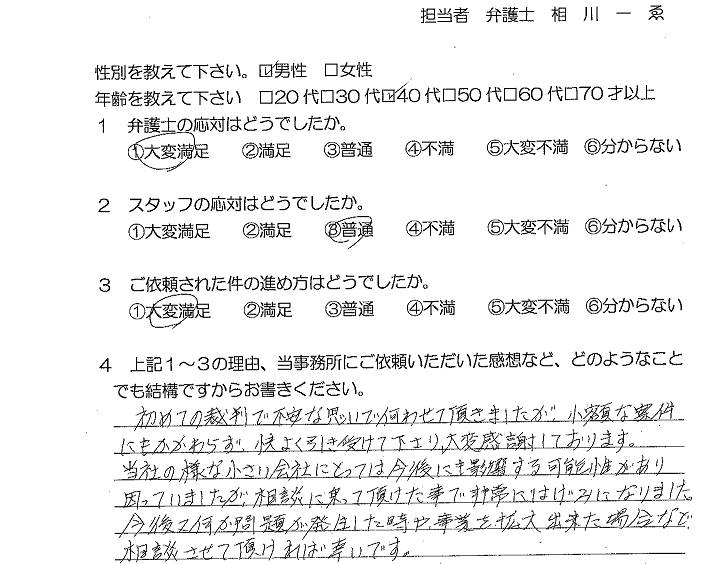 担当者 弁護士 相 川 一 ゑ
性別を教えて下さい。☑男性 □女性
年齢を教えて下さい □20代□30代☑40代□50代□60代□70才以上
1 弁護士の応対はどうでしたか。
①大変満足 ②満足 ③普通 ④不満 ⑤大変不満 ⑥分からない
2 スタッフの応対はどうでしたか。
①大変満足 ②満足 ③普通 ④不満 ⑤大変不満 ⑥分からない
3 ご依頼された件の進め方はどうでしたか。
①大変満足 ②満足 ③普通 ④不満 ⑤大変不満 ⑥分からない
4 上記1～3の理由、当事務所にご依頼いただいた感想など、どのようなこと
でも結構ですからお書きください。
初めての裁判で不安な思いで伺わせて頂きましたが、小額な案件
にもかかわらず、快よく引き受けて下さり、大変感謝しております。
当社の様な小さい会社にとっては今後にも影響する可能性があり
困っていましたが、相談に乗って頂けた事で非常にはげみになりました。
今後又何か問題が発生した時や事業を拡大出来た場合など、
相談させて頂ければ幸いです。